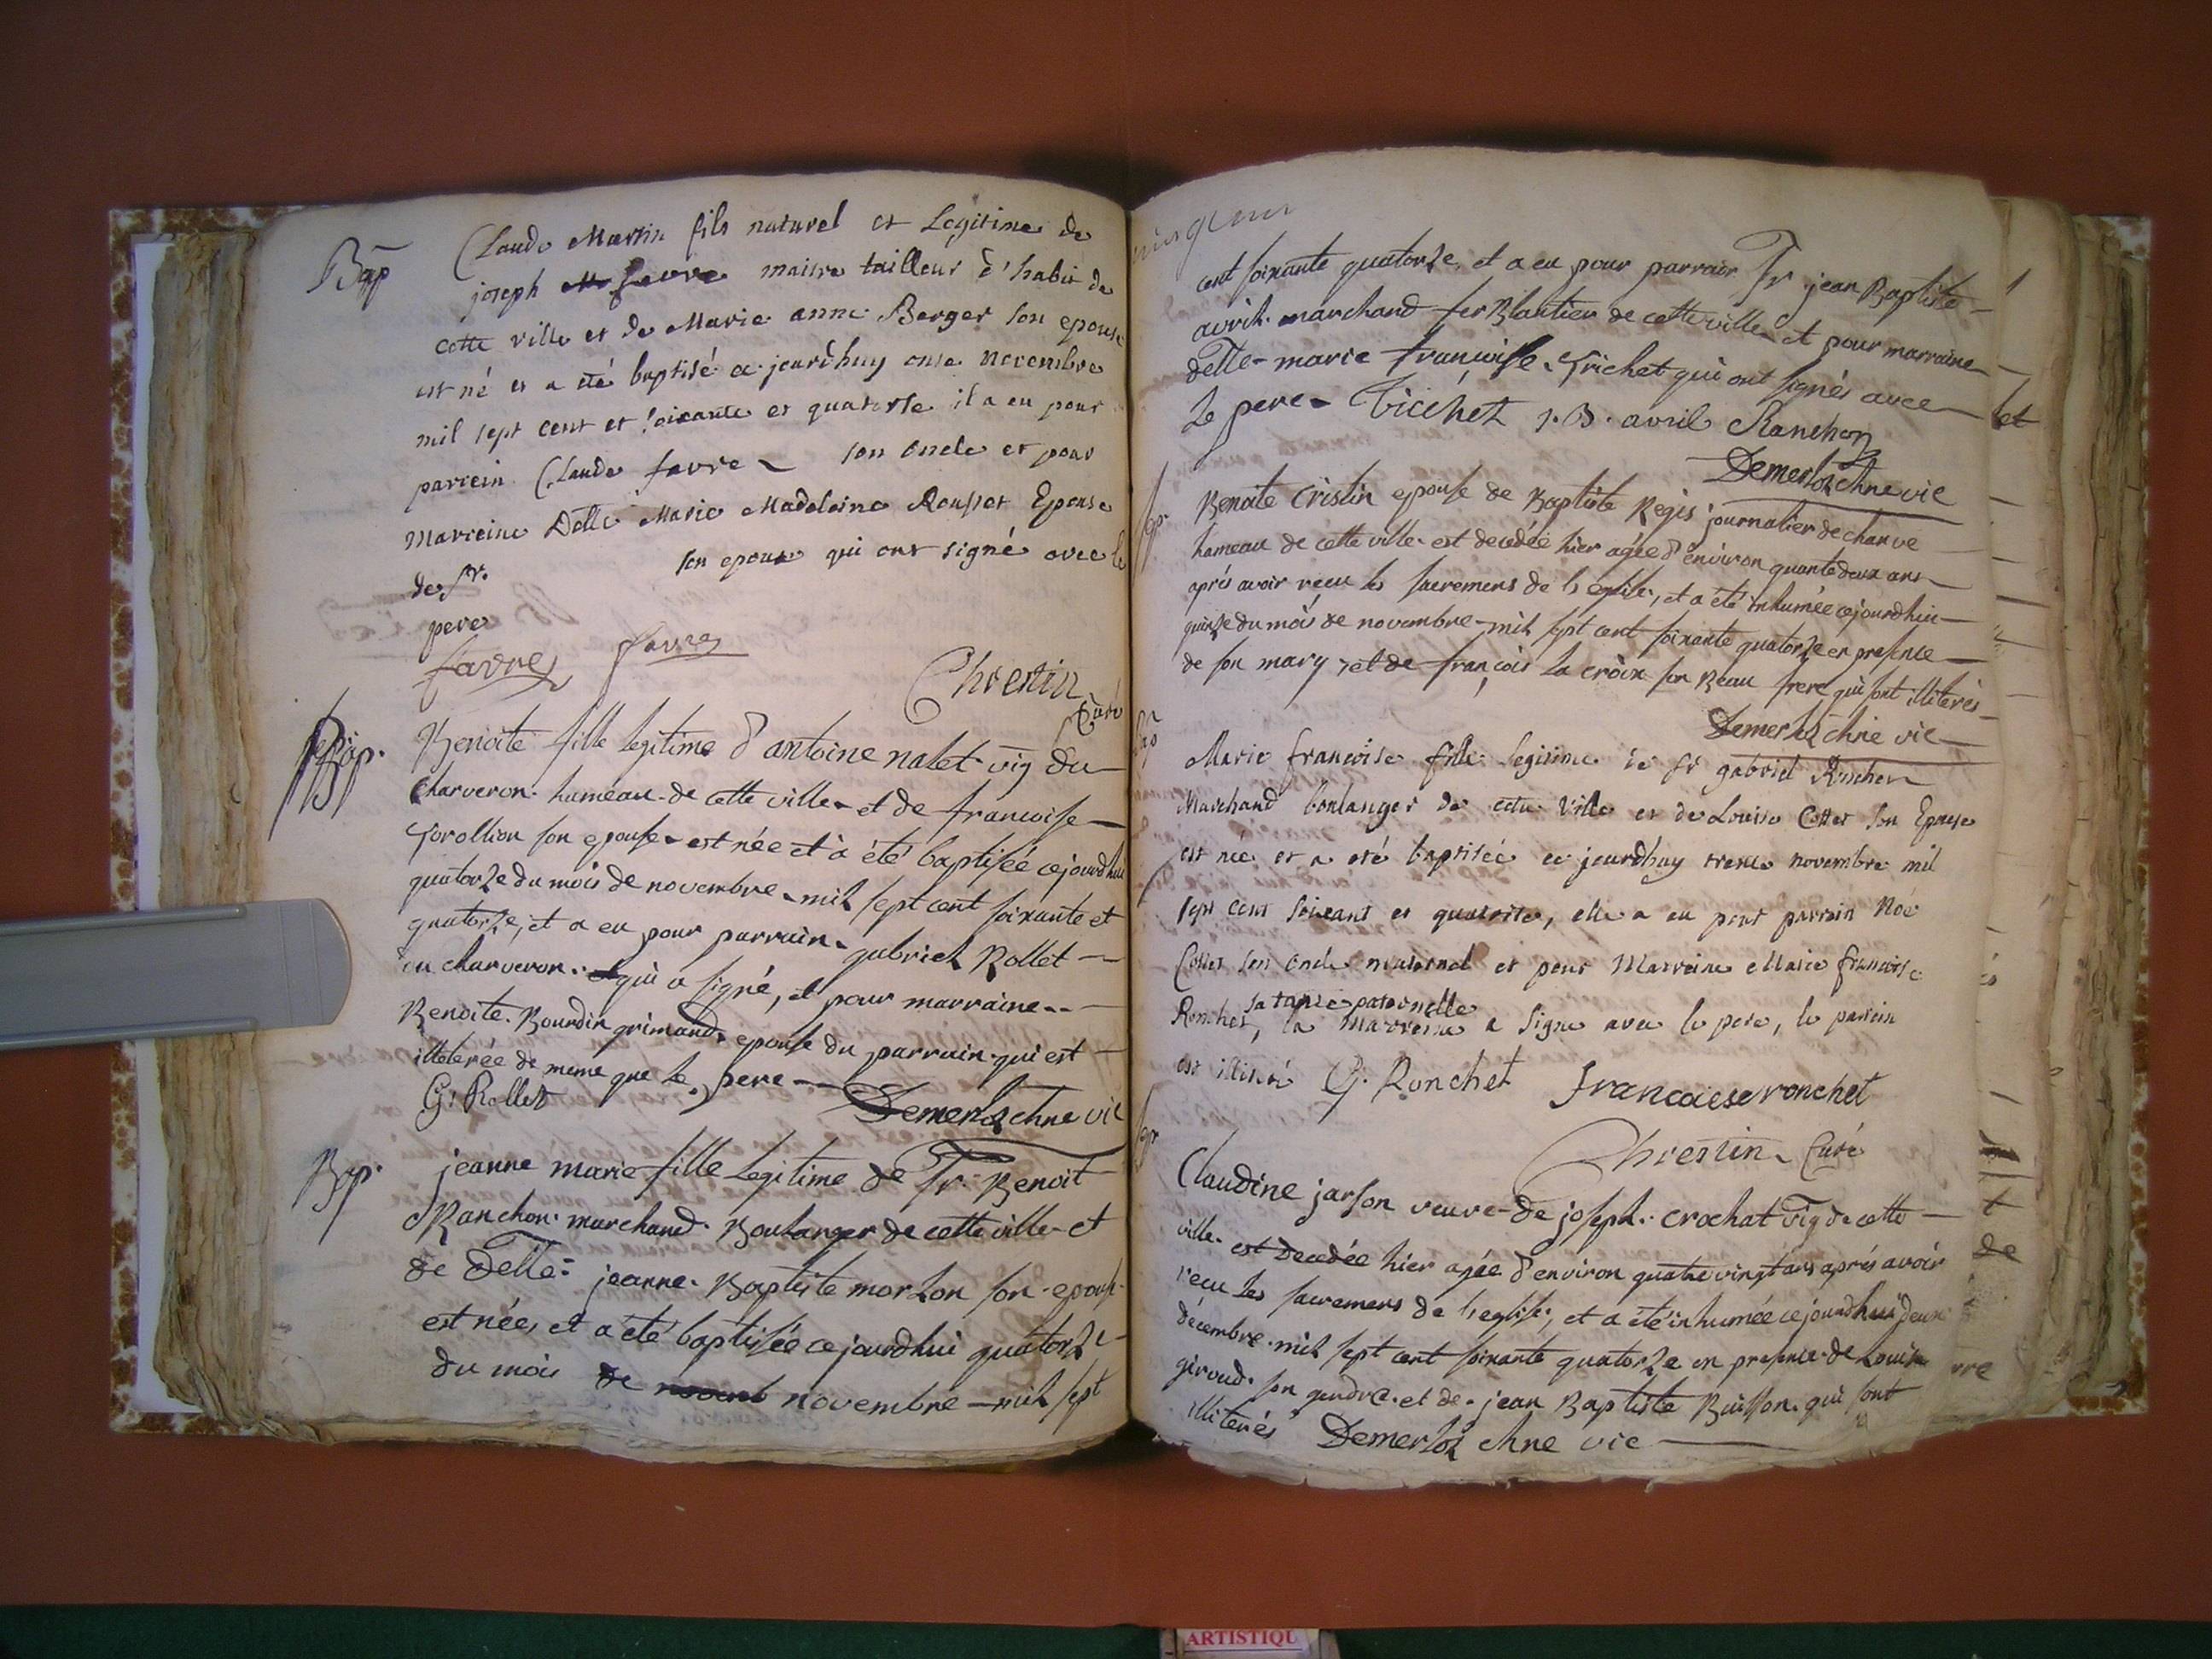 Bap
Claude Martin fils naturel et Legitime de
joseph favre maitre tailleur d'habit de
cette ville et de Marie anne Berger son epouse
est né et a été baptisé ce jourd'huy onse novembre
mil sept cent et soixante et quatorse il a eu pour
parrein Claude favre son oncle et pour
Marreine Delle Marie Madeleine Rousset Epouse
de sr. son epoux qui ont signé avec le
pere
favre favre
Chrestin
Curé
Bap.
Benoite fille legitime d'antoine nalet vig du
Charveron hameau de cette ville et de francoise
Gorollion son epouse est née et a été baptisée cejourdhui
quatorze du mois de novembre mil sept cent soixante et
quatorze, et a eu pour parrain gabriel Rollet
du charveron qui a signé, et pour marraine
Benoite Bourdin grimaud epouse du parrain qui est
illeterée de meme que le pere
G: Rollet
Demerloz chne vic
Bap.
jeanne marie fille legitime de Sr. Benoit
Ranchon marchand Boulanger de cette ville et
de delle jeanne Baptiste morlon son epouse
est née, et a été baptisée cejourdhui quatorze
du mois de novembre mil sept
cent soixante quatorze, et a eu pour parrain Sr jean Baptiste
avril marchand ferBlantier de cette ville et pour marraine
delle marie francoise Trichet qui ont signés avec
le pere Trichet J. B. avril Ranchon
Demerloz chne vic
Sep.
Benoite Cristin epouse de Baptiste Regis journalier de chanve
hameau de cette ville est decédée hier agée d'environ quante deux ans
aprés avoir reçu les sacremens de l'eglise, et a été inhumée cejourdhui
quinze du mois de novembre mil sept cent soixante quatorze en presence
de son mary, et de françois la croix son Beau frere qui sont illiterés
Demerloz chne vic
Bap
Marie francoise fille legitime de sr gabriel Ronchet
Marchand boulanger de cette ville et de Louise Cottet son Epouse
est née et a été baptisée ce jourdhuy trese novembre mil
sept cent soixant et quatorse, elle a eu pour parrein Noé
Cottet son oncle maternel et pour Marreine Marie francoise
sa tante paternelle
Ronchet, la marreine a signé avec le pere, le parrein
est illitéré G. Ronchet francoiese ronchet
Chrestin Curé
Sep
Claudine jarson veuve de joseph crochat vig de cette
ville est decedée hier agée d'environ quatre vingt ans aprés avoir
reçu les sacremens de l'eglise, et a été inhumée cejourdhui deux
decembre mil sept cent soixante quatorze en presence de Louis
giroud son gendre et de jean Baptiste Buisson qui sont
illiterés Demerloz chne vic
ARTISTIQU